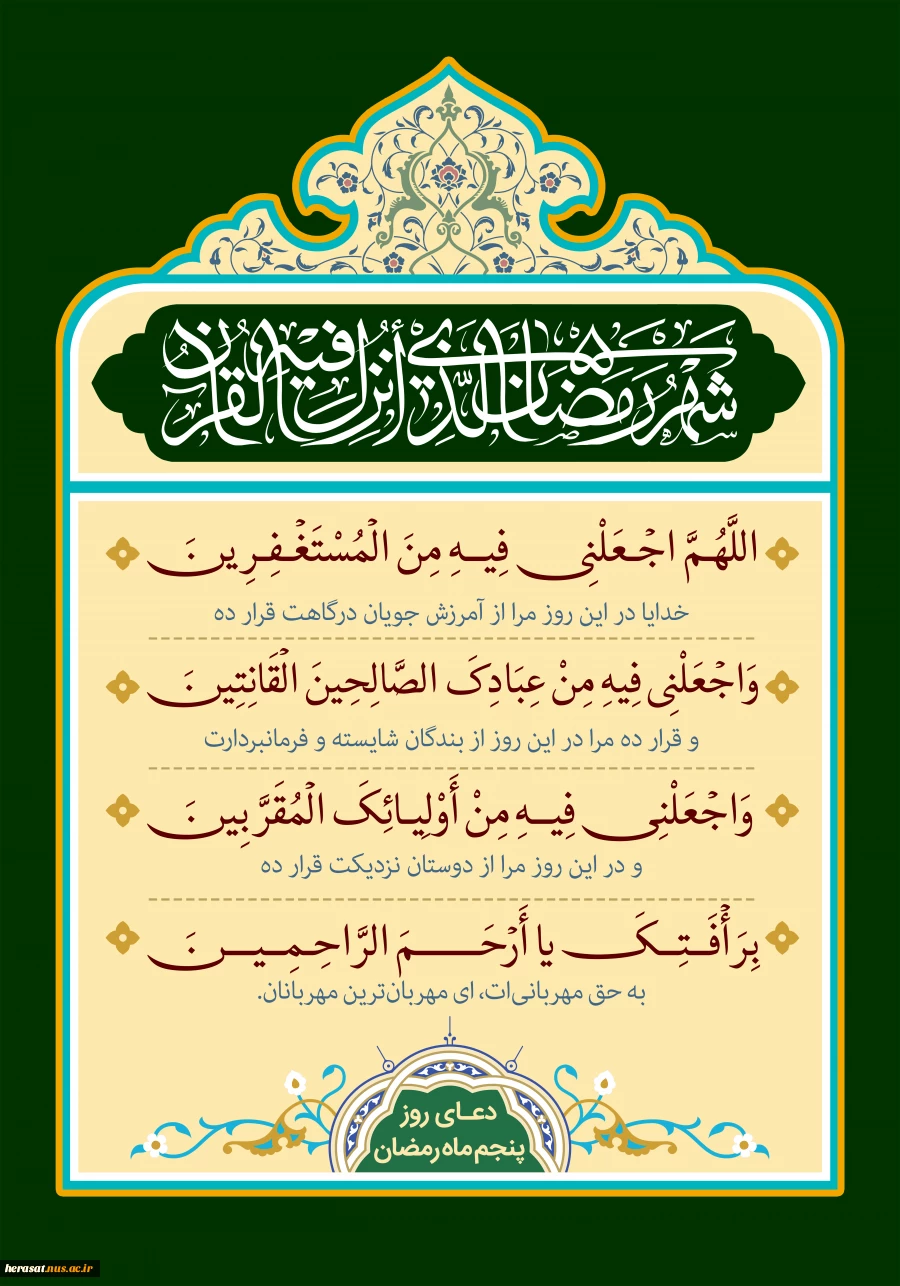 شَهْرُ رَمَضَانَ الَّذِي أُنْزِلَ فِيهِ الْقُرْآنُ
اللَّهُمَّ اجْعَلْنِی فِیهِ مِنَ الْمُسْتَغْفِرِینَ
خدایا در این روز مرا از آمرزش جویان درگاهت قرار ده
وَاجْعَلْنِی فِیهِ مِنْ عِبَادِکَ الصَّالِحِینَ الْقَانِتِینَ
و قرار ده مرا در این روز از بندگان شایسته و فرمانبردارت
وَاجْعَلْنِی فِیهِ مِنْ أَوْلِیائِکَ الْمُقَرَّبِینَ
و در این روز مرا از دوستان نزدیکت قرار ده
بِرَأْفَتِکَ یا أَرْحَمَ الرَّاحِمِینَ
به حق مهربانی‌ات، ای مهربان‌ترین مهربانان.
دعای روز
پنجم ماه رمضان
herasat.nus.ac.ir